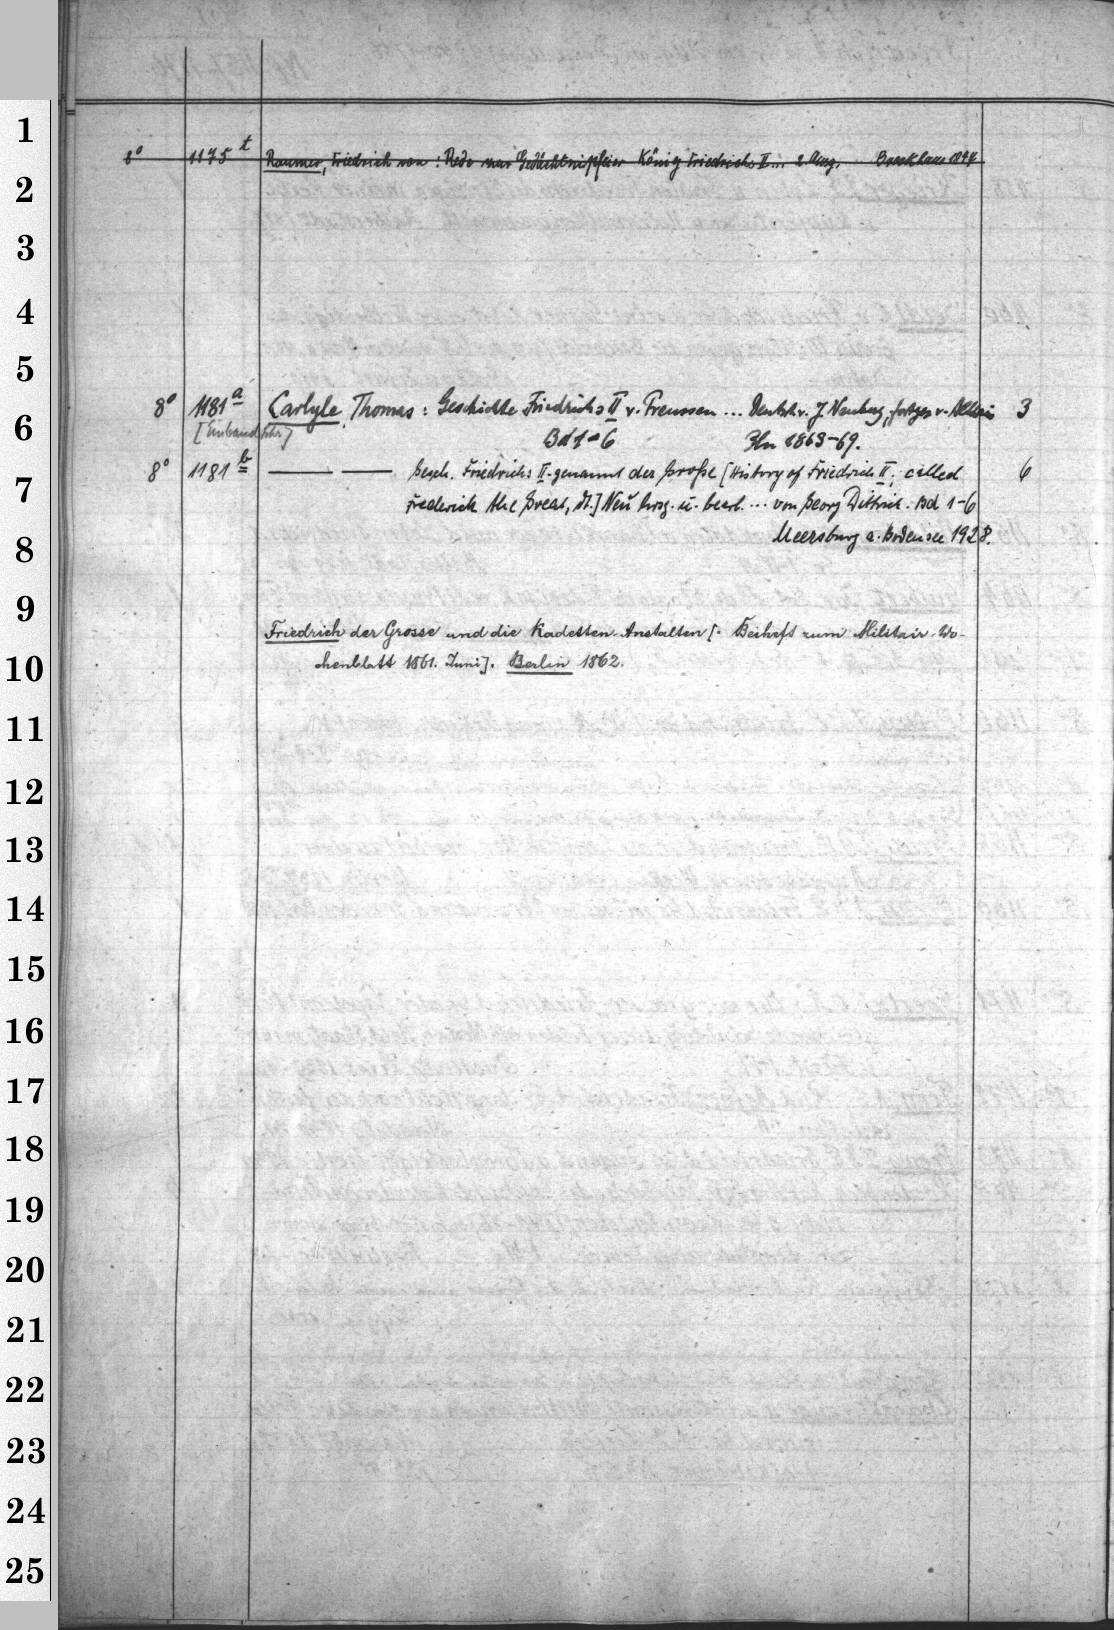 1
8° 1175 t Raumer, Friedrich von: Rede zur Gedächtnißfeier König Friedrichs II... 2 Ausg. 1844
2
3
4
5
8° 1181 a Carlyle, Thomas: Geschichte Friedrichs II v. Preussen ... Deutsch v. J. Neuberg, fortges v. Althaus 3
6
Bd 1-6 Bln 1863-69.
8° 1181 b Gesch. Friedrichs II. genannt der Große [History of Friedrich II, called 6
7
Frederick the Great, dt.] Neu hrsg. u. bearb. ... von Georg Dittrich. Bd 1-6
8
Meersburg a. Bodensee 1928.
9
Friedrich der Grosse und die Kadetten-Anstalten [. Beiheft zum Militair-Wo-
10
chenblatt 1861. Juni]. Berlin 1862.
11
12
13
14
15
16
17
18
19
20
21
22
23
24
25